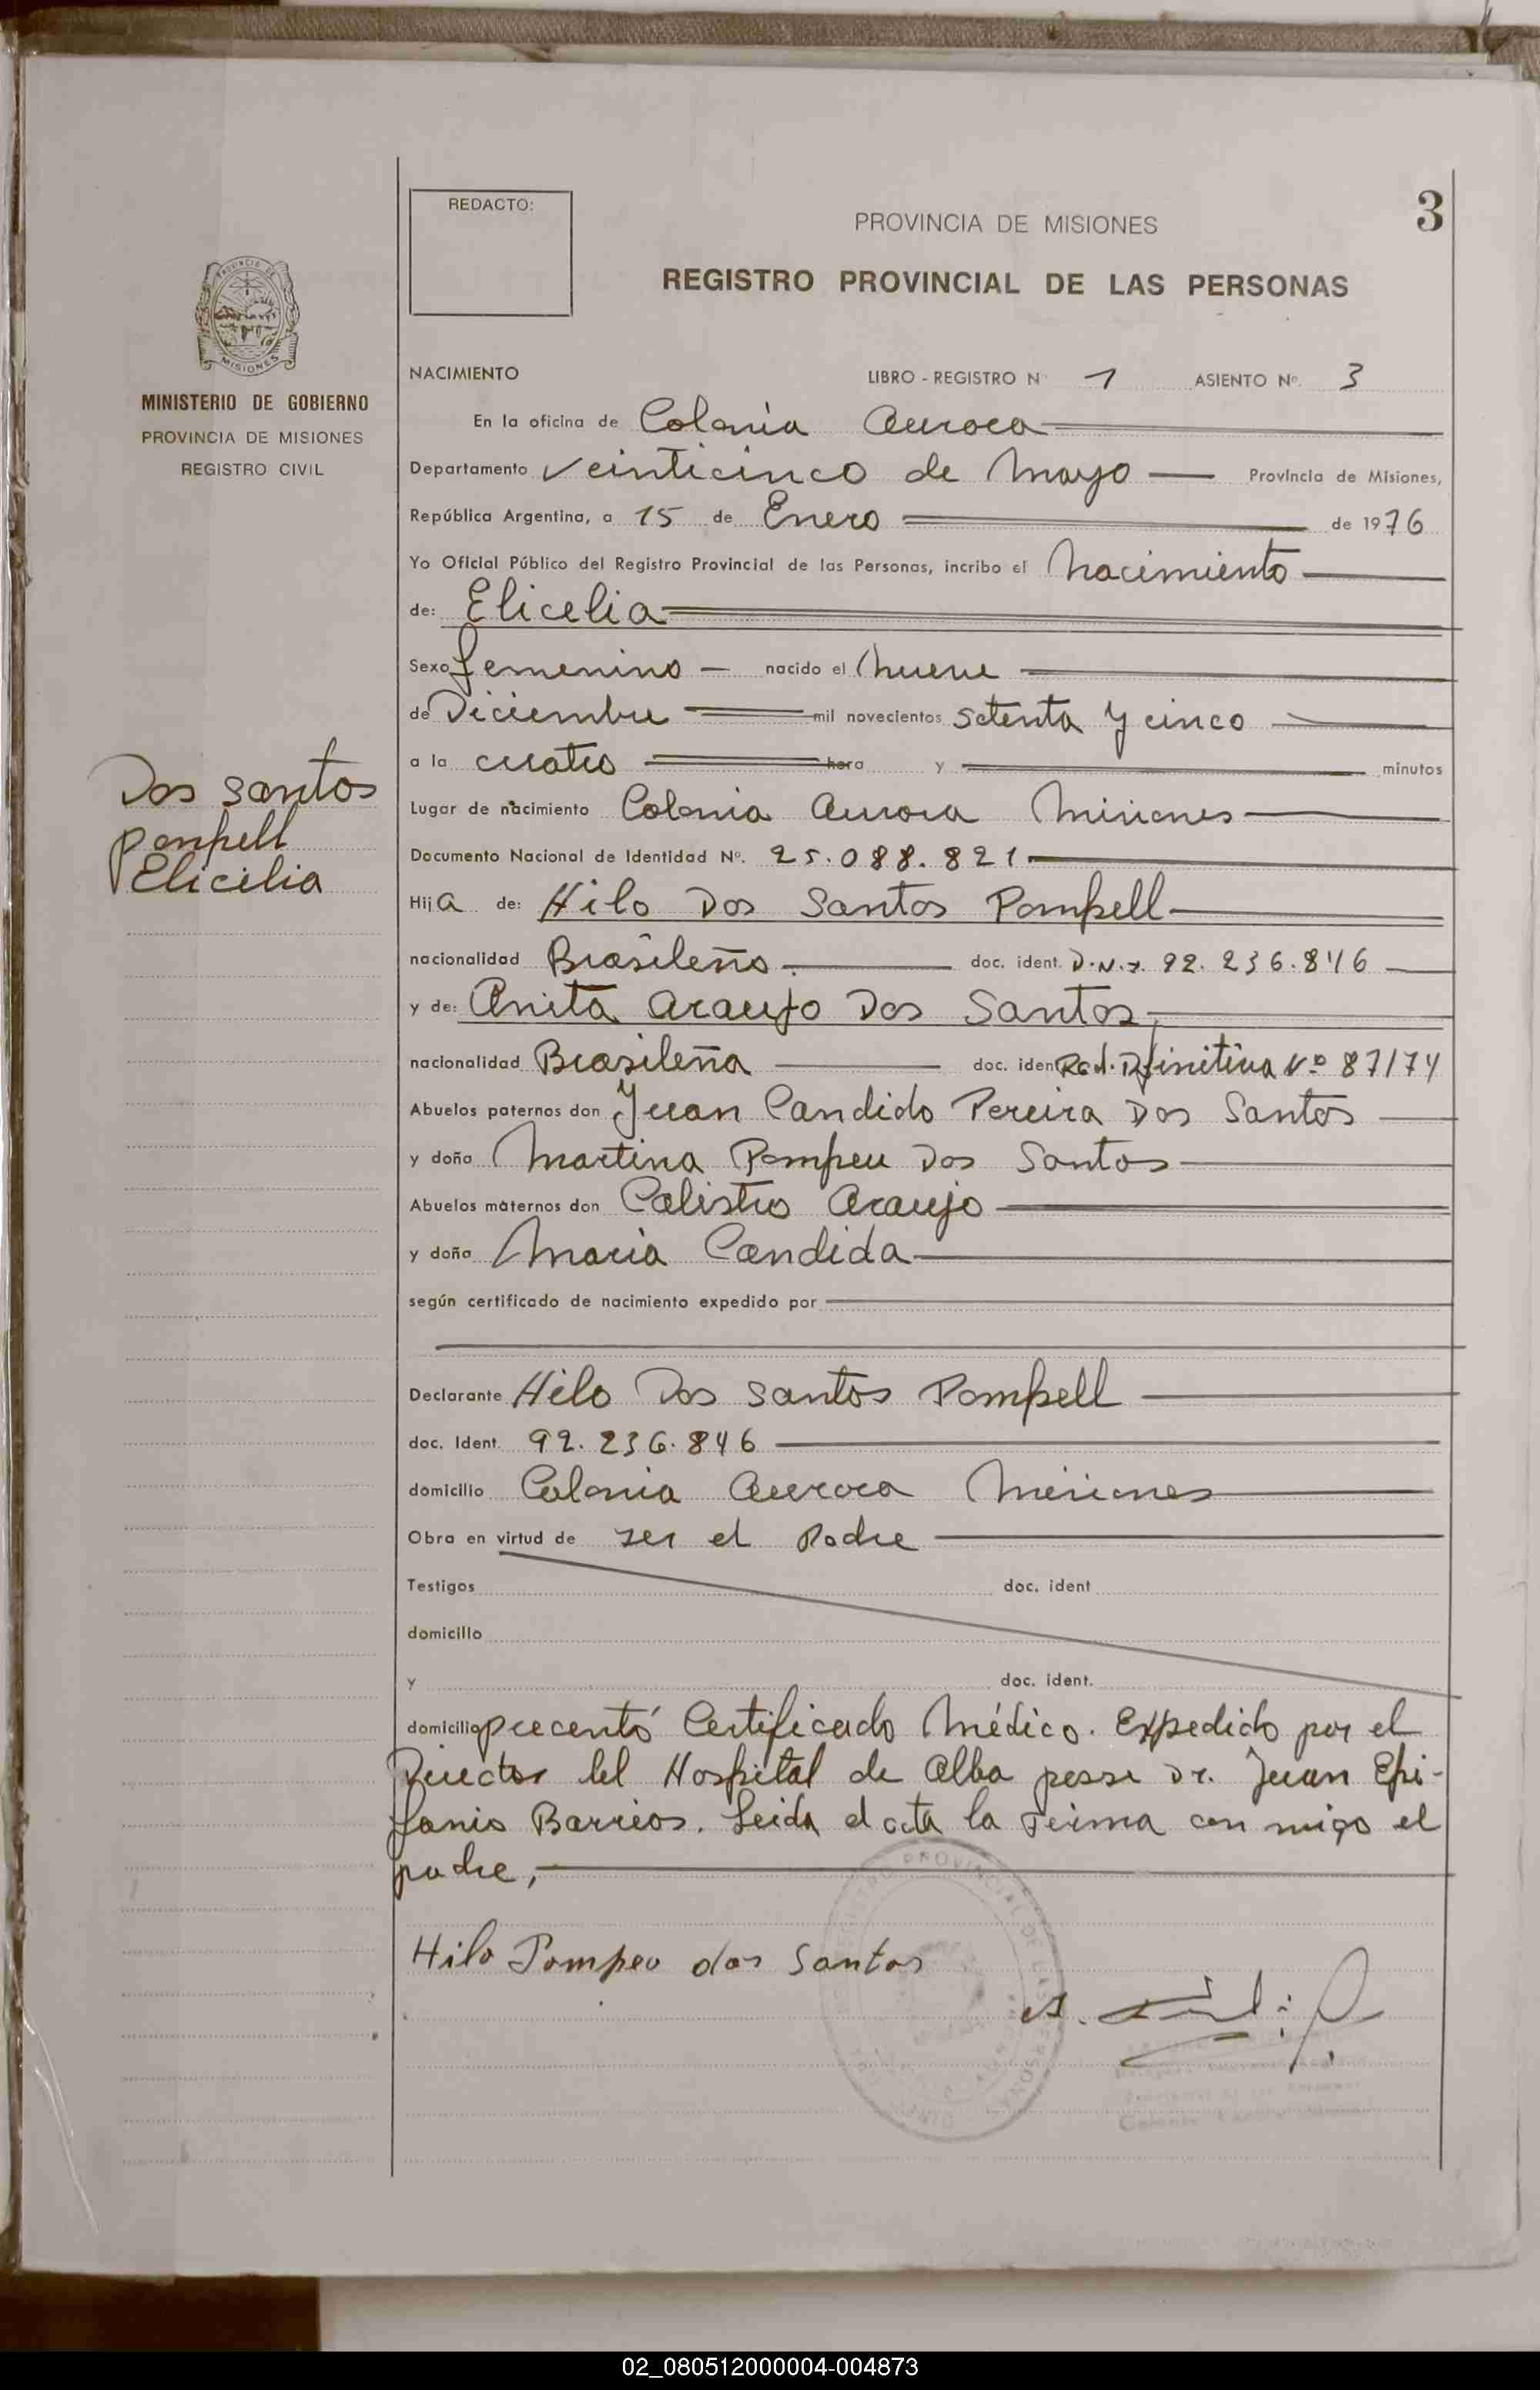 REDACTO:
PROVINCIA DE MISIONES
3
REGISTRO PROVINCIAL DE LAS PERSONAS
MISIONES
MINISTERIO DE GOBIERNO
PROVINCIA DE MISIONES
REGISTRO CIVIL
NACIMIENTO LIBRO - REGISTRO N° 1 ASIENTO N° 3
En la oficina de Colonia Aurora
Departamento Veinticinco de Mayo Provincia de Misiones,
República Argentina, a 15 de Enero de 1976
Yo Oficial Público del Registro Provincial de las Personas, incribo el Nacimiento
de: Elicelia
Sexo femenino nacido el Nueve
de Diciembre mil novecientos setenta y cinco
a la cuatro hora y minutos
Dos Santos
Pompell
Elicilia
Lugar de nacimiento Colonia Aurora Misiones
Documento Nacional de Identidad N°. 25.088.821
Hija de: Hilo Dos Santos Pompell
nacionalidad Brasileño. doc. ident. D.N.I. 92.236.846
y de: Anita Araujo Dos Santos,
nacionalidad Brasileña doc. iden Rad. Definitiva Nº 87/74
Abuelos paternos don Juan Candido Pereira Dos Santos
y doña Martina Pompeu Dos Santos
Abuelos maternos don Calistro Araujo
y doña Maria Candida
según certificado de nacimiento expedido por
Declarante Hilo Dos Santos Pompell
doc. Ident. 92.236.846
domicilio Colonia Aurora Misiones
Obra en virtud de ser el Padre
Testigos doc. ident
domicilio
y doc. ident.
domicilio precentó Certificado Médico. Expedido por el
Director del Hospital de Alba posse Dr. Juan Epi-
fanio Barrios. Leida el acta la Firma con migo el
padre,
Hilo Pompeu dos Santos
02_080512000004-004873